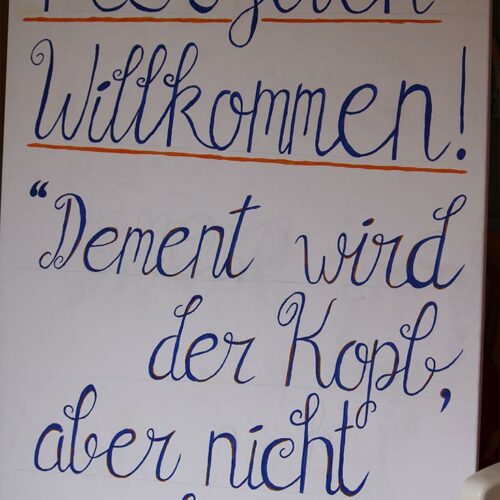 Willkommen!
“Dement wird
der Kopf,
aber nicht